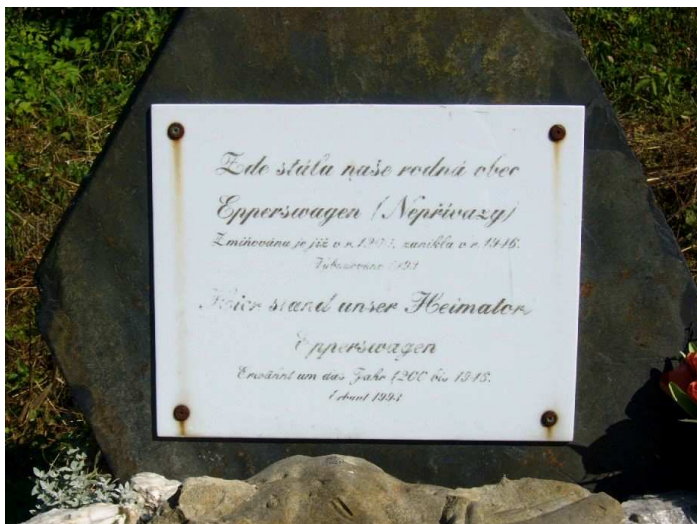 Zde stála naše rodná obec
Epperswagen (Nepřívazy)
Zmiňována je již v r. zanikla v r. 1946.
Hier stand unser Heimatort
Epperswagen
Erwähnt um das Jahr 1200 bis 1946.
Erbaut 1993